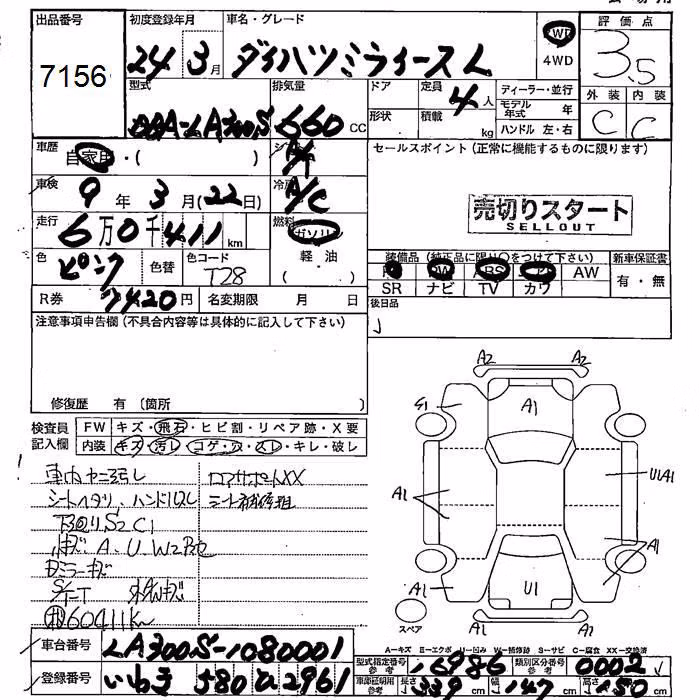 出品番号 初度登録年月 車名・グレード 評価点
7156 24 3月 ダイハツ ミライース L 2WD 4WD 3.5
型式 排気量 ドア 定員 4人 ディーラー・並行 外装 内装
DBA-LA300S 660 CC 形状 積載 kg モデル年式 年 C C
ハンドル 左・右
車歴 自家用・( ) シフト AT セールスポイント(正常に機能するものに限ります)
車検 9年 3月(22日) 冷房 A/C
売切りスタート
SELLOUT
走行 6万0千411km 燃料 ガソリン
軽油
色 ピンク 色替 色コード T28
装備品(純正品に限り○をつけて下さい) 新車保証書
PS PW ABS エアB AW 有・無
SR ナビ TV カワ
R券 7420円 名変期限 月 日 後日品
注意事項申告欄(不具合内容等は具体的に記入して下さい)
修復歴 有 (箇所
検査員記入欄 FW キズ・飛石・ヒビ割・リペア跡・X要
内装 キズ・汚レ・コゲ・穴・スレ・キレ・破レ
車内ヤニ汚レ コアサポートXX
シートヘタリ、ハンドルスレ シート補修粗
下回りS2 C1
小キズ A、U、W2
ミラーキズ
60411km
A2 A2
A1
S1
A1
U1A1
A1
A1
U1 A1
A2 A2
スペア
A=キズ E=エクボ U=凹み W=補修跡 S=サビ C=腐食 XX=交換済
車台番号 LA300S-1080001
型式指定番号 参考 16986 類別区分番号 参考 0002
登録番号 いわき 580 2961
車庫証明用 参考 長さ 339cm 幅 147cm 高さ 150cm